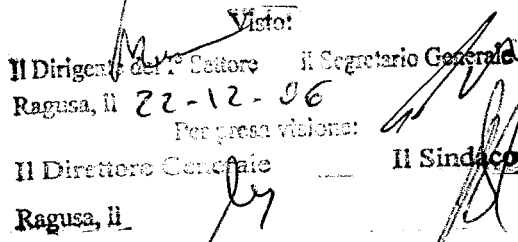 Visto:
Il Dirigente del 1° Settore il Segretario Generale
Ragusa, il 22-12-06
Per presa visione:
Il Direttore Generale Il Sindaco
Ragusa, il